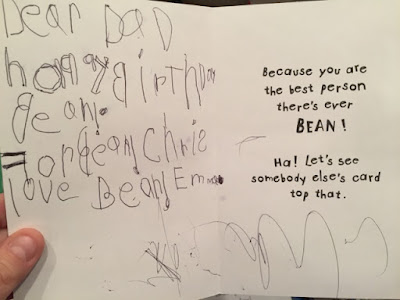 Dear DAD
happy Birthday
Bean.
For Bean Chris
love Bean Em
Because you are
the best person
there's ever
BEAN!
Ha! Let's see
somebody else's card
top that.